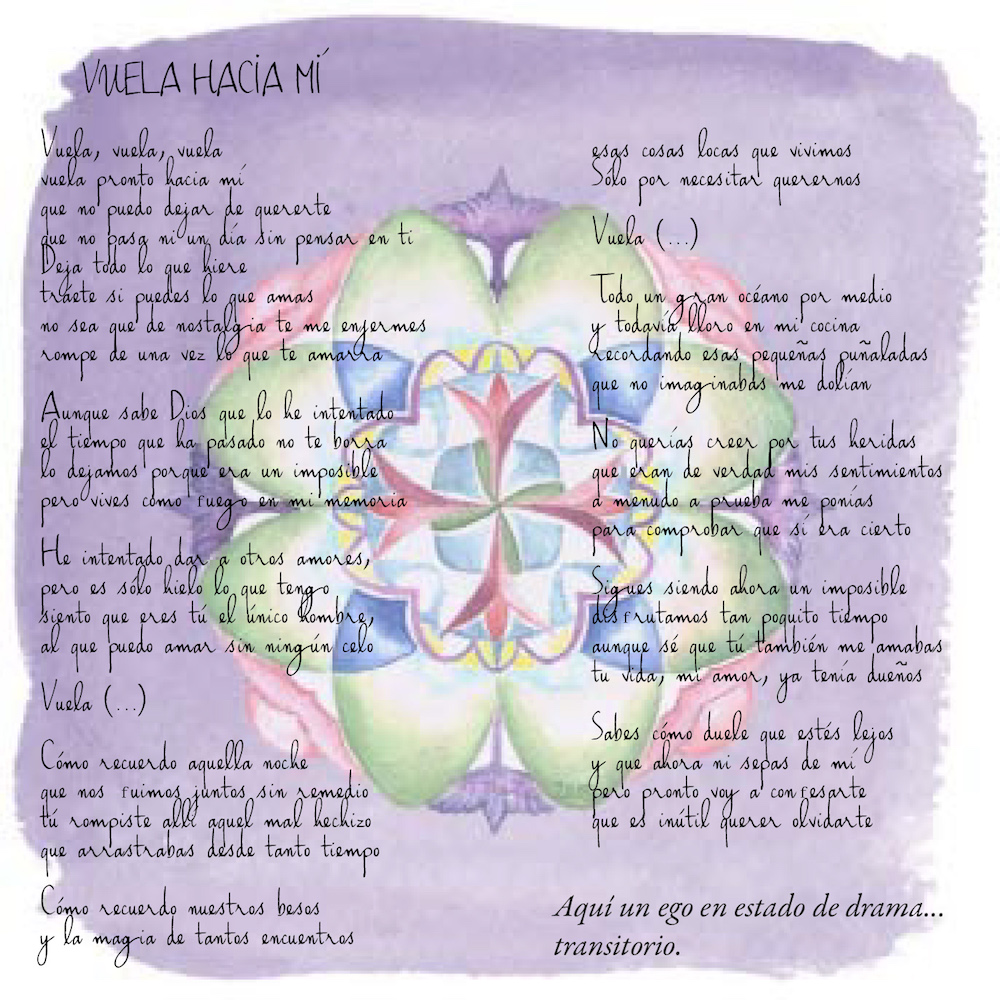 VUELA HACIA MÍ
Vuela, vuela, vuela
vuela pronto hacia mí
que no puedo dejar de quererte
que no pasa ni un día sin pensar en ti
Deja todo lo que hiere
tráete si puedes lo que amas
no sea que de nostalgia te me enfermes
rompe de una vez lo que te amarra
Aunque sabe Dios que lo he intentado
el tiempo que ha pasado no te borra
lo dejamos porque era un imposible
pero vives como fuego en mi memoria
He intentado dar a otros amores,
pero es sólo hielo lo que tengo
siento que eres tú el único hombre,
al que puedo amar sin ningún celo
Vuela (...)
Cómo recuerdo aquella noche
que nos fuimos juntos sin remedio
tú rompiste allí aquel mal hechizo
que arrastrabas desde tanto tiempo
Cómo recuerdo nuestros besos
y la magia de tantos encuentros
esas cosas locas que vivimos
Sólo por necesitar querernos
Vuela (...)
Todo un gran océano por medio
y todavía lloro en mi cocina
recordando esas pequeñas puñaladas
que no imaginabas me dolían
No querías creer por tus heridas
que eran de verdad mis sentimientos
a menudo a prueba me ponías
para comprobar que sí era cierto
Sigues siendo ahora un imposible
disfrutamos tan poquito tiempo
aunque sé que tú también me amabas
tu vida, mi amor, ya tenía dueños
Sabes cómo duele que estés lejos
y que ahora ni sepas de mí
pero pronto voy a confesarte
que es inútil querer olvidarte
Aquí un ego en estado de drama...
transitorio.